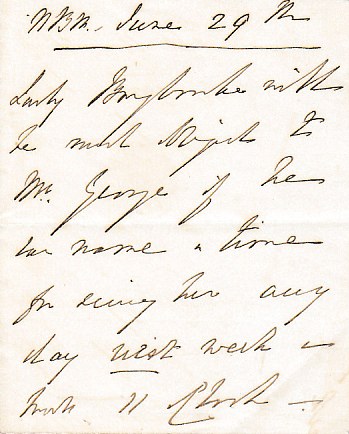 June 29th
Lady Braybrooke will
be most obliged to
Mr. George if he
can name a time
for seeing her any
day next week
11 o'clock